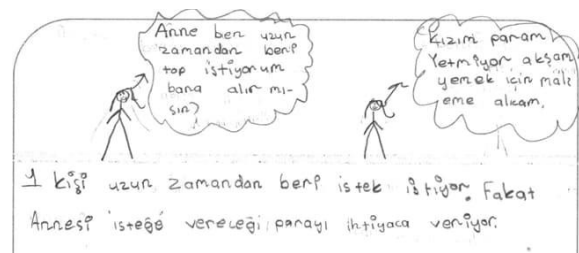 Anne ben uzun
zamandan beri
top istiyorum
bana alır mı-
sın?
Kızım param
Yetmiyor akşam
yemek için malz
eme alıcam.
1 kişi uzun zamandan beri istek istiyor. Fakat
Annesi isteğe vereceği parayı ihtiyaca veriyor.